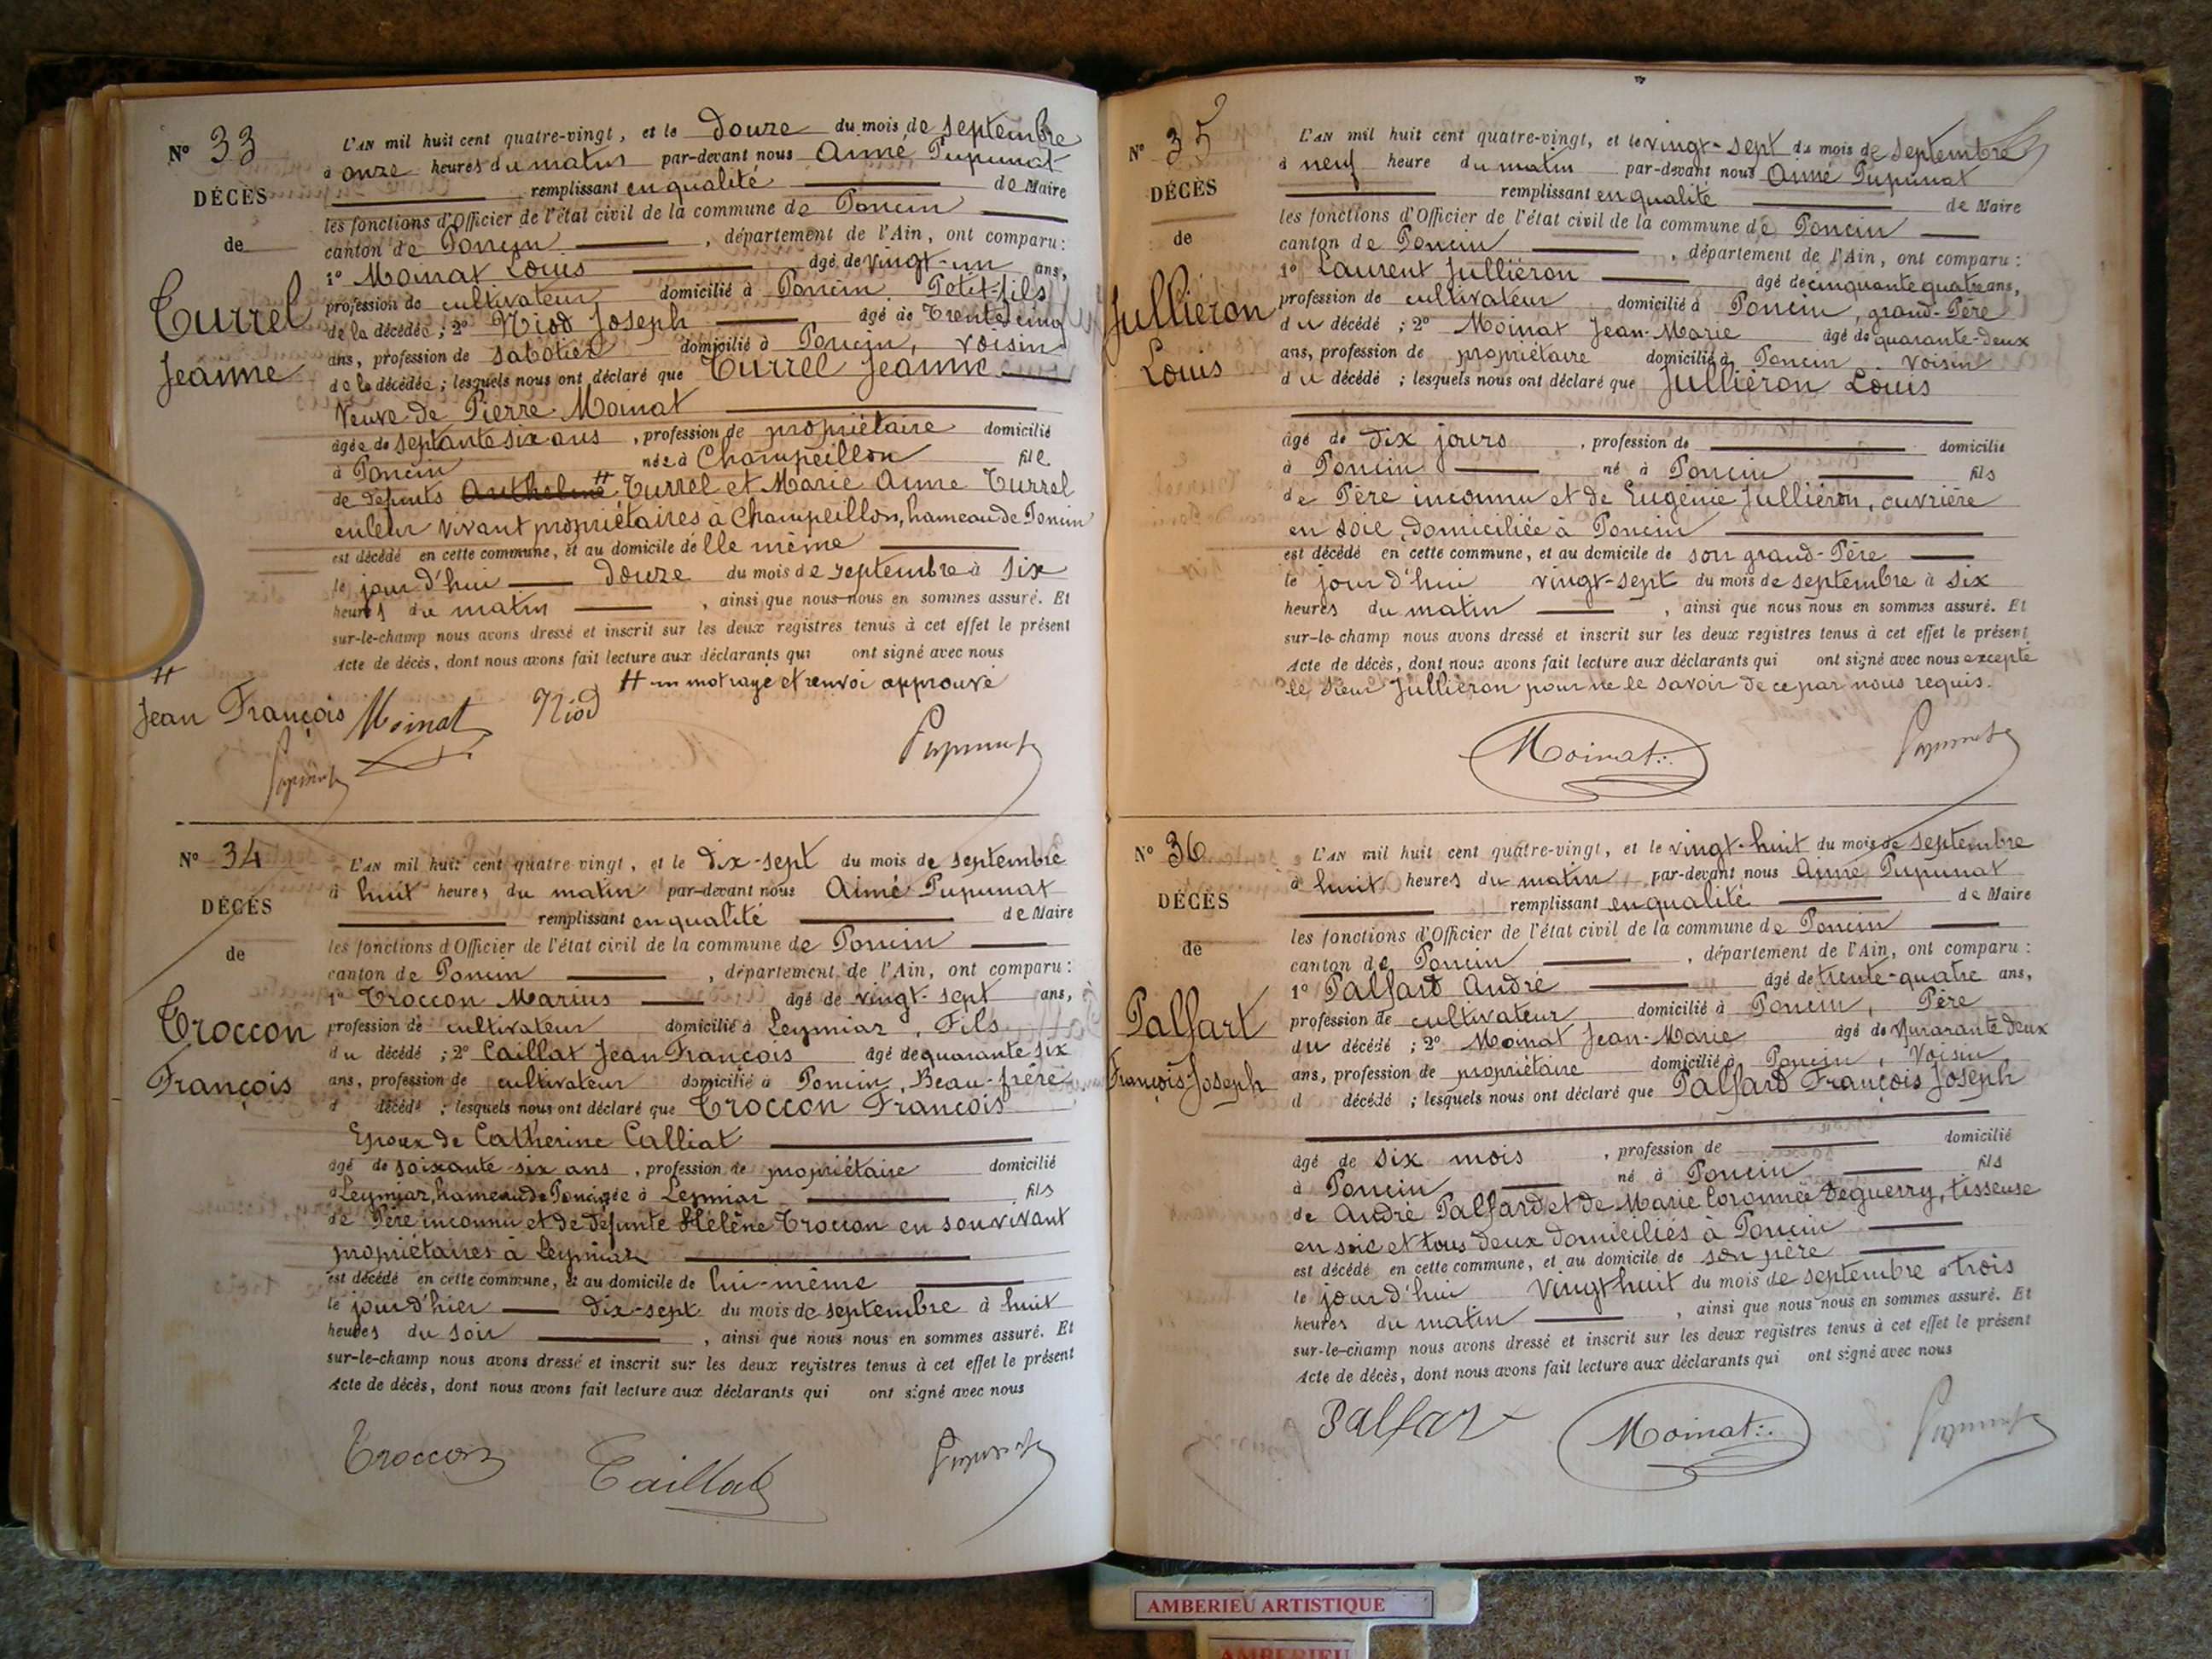 N° 33
DÉCÈS
de
Turrel
Jeanne
L'AN mil huit cent quatre-vingt, et le douze du mois de septembre
à onze heures du matin par-devant nous Aimé Pupunat
remplissant en qualité de Maire
les fonctions d'Officier de l'état civil de la commune de Poncin
canton de Poncin , département de l'Ain, ont comparu :
1° Moinat Louis âgé de vingt-un ans,
profession de cultivateur domicilié à Poncin Petit-fils
de la décédée ; 2° Niod Joseph âgé de Trente cinq
ans, profession de sabotier domicilié à Poncin, voisin
de la décédée ; lesquels nous ont déclaré que Turrel Jeanne
Veuve de Pierre Moinat
âgée de septante six ans , profession de propriétaire domicilié
à Poncin née à Champeillon fille
de défunts Anthelme # Turrel et Marie Anne Turrel
en leur vivant propriétaires à Champeillon, hameau de Poncin
est décédé en cette commune, et au domicile d'elle même
le jour d'hui douze du mois de septembre à six
heures du matin , ainsi que nous nous en sommes assuré. Et
sur-le-champ nous avons dressé et inscrit sur les deux registres tenus à cet effet le présent
Acte de décès, dont nous avons fait lecture aux déclarants qui ont signé avec nous
# un mot rayé et renvoi approuvé
#
Jean François Moinat Niod Pupunat
Pupunat
N° 34
DÉCÈS
de
Troccon
François
L'AN mil huit cent quatre-vingt, et le dix-sept du mois de septembre
à huit heures du matin par-devant nous Aimé Pupunat
remplissant en qualité de Maire
les fonctions d'Officier de l'état civil de la commune de Poncin
canton de Poncin , département de l'Ain, ont comparu :
1° Troccon Marius âgé de vingt-sept ans,
profession de cultivateur domicilié à Leymiar, Fils
du décédé ; 2° Caillat Jean François âgé de quarante six
ans, profession de cultivateur domicilié à Poncin, Beau-frère
d décédé ; lesquels nous ont déclaré que Troccon François
Epoux de Catherine Calliat
âgé de soixante-six ans , profession de propriétaire domicilié
à Leymiar, hameau de Poncin né à Leymiar fils
de Père inconnu et de défunte Hélène Troccon en son vivant
propriétaires à Leymiar
est décédé en cette commune, et au domicile de lui-même
le jour d'hier dix-sept du mois de septembre à huit
heures du soir , ainsi que nous nous en sommes assuré. Et
sur-le-champ nous avons dressé et inscrit sur les deux registres tenus à cet effet le présent
Acte de décès, dont nous avons fait lecture aux déclarants qui ont signé avec nous
Troccon Caillat Pupunat
N° 35
DÉCÈS
de
Julliéron
Louis
L'AN mil huit cent quatre-vingt, et le vingt-sept du mois de septembre
à neuf heure du matin par-devant nous Aimé Pupunat
remplissant en qualité de Maire
les fonctions d'Officier de l'état civil de la commune de Poncin
canton de Poncin , département de l'Ain, ont comparu :
1° Laurent Julliéron âgé de cinquante quatre ans,
profession de cultivateur domicilié à Poncin, grand-Père
du décédé ; 2° Moinat Jean-Marie âgé de quarante-deux
ans, profession de propriétaire domicilié à Poncin voisin
du décédé ; lesquels nous ont déclaré que Julliéron Louis
âgé de dix jours , profession de domicilié
à Poncin né à Poncin fils
de Père inconnu et de Eugénie Julliéron, ouvrière
en soie, domiciliée à Poncin
est décédé en cette commune, et au domicile de son grand-Père
le jour d'hui vingt-sept du mois de septembre à six
heures du matin , ainsi que nous nous en sommes assuré. Et
sur-le-champ nous avons dressé et inscrit sur les deux registres tenus à cet effet le présent
Acte de décès, dont nous avons fait lecture aux déclarants qui ont signé avec nous excepté
le sieur Julliéron pour ne le savoir de ce par nous requis.
Moinat Pupunat
N° 36
DÉCÈS
de
Palfart
François-Joseph
L'AN mil huit cent quatre-vingt, et le vingt-huit du mois de septembre
à huit heures du matin par-devant nous Aimé Pupunat
remplissant en qualité de Maire
les fonctions d'Officier de l'état civil de la commune de Poncin
canton de Poncin , département de l'Ain, ont comparu :
1° Palfard André âgé de trente-quatre ans,
profession de cultivateur domicilié à Poncin, Père
du décédé ; 2° Moinat Jean-Marie âgé de quarante deux
ans, profession de propriétaire domicilié à Poncin, Voisin
d décédé ; lesquels nous ont déclaré que Palfard François Joseph
âgé de six mois , profession de domicilié
à Poncin né à Poncin fils
de André Palfard et de Marie Coronnée Deguerry, tisseuse
en soie et tous deux domiciliés à Poncin
est décédé en cette commune, et au domicile de son père
le jour d'hui vingt huit du mois de septembre à trois
heures du matin , ainsi que nous nous en sommes assuré. Et
sur-le-champ nous avons dressé et inscrit sur les deux registres tenus à cet effet le présent
Acte de décès, dont nous avons fait lecture aux déclarants qui ont signé avec nous
Palfar Moinat Pupunat
AMBERIEU ARTISTIQUE
AMBERIEU